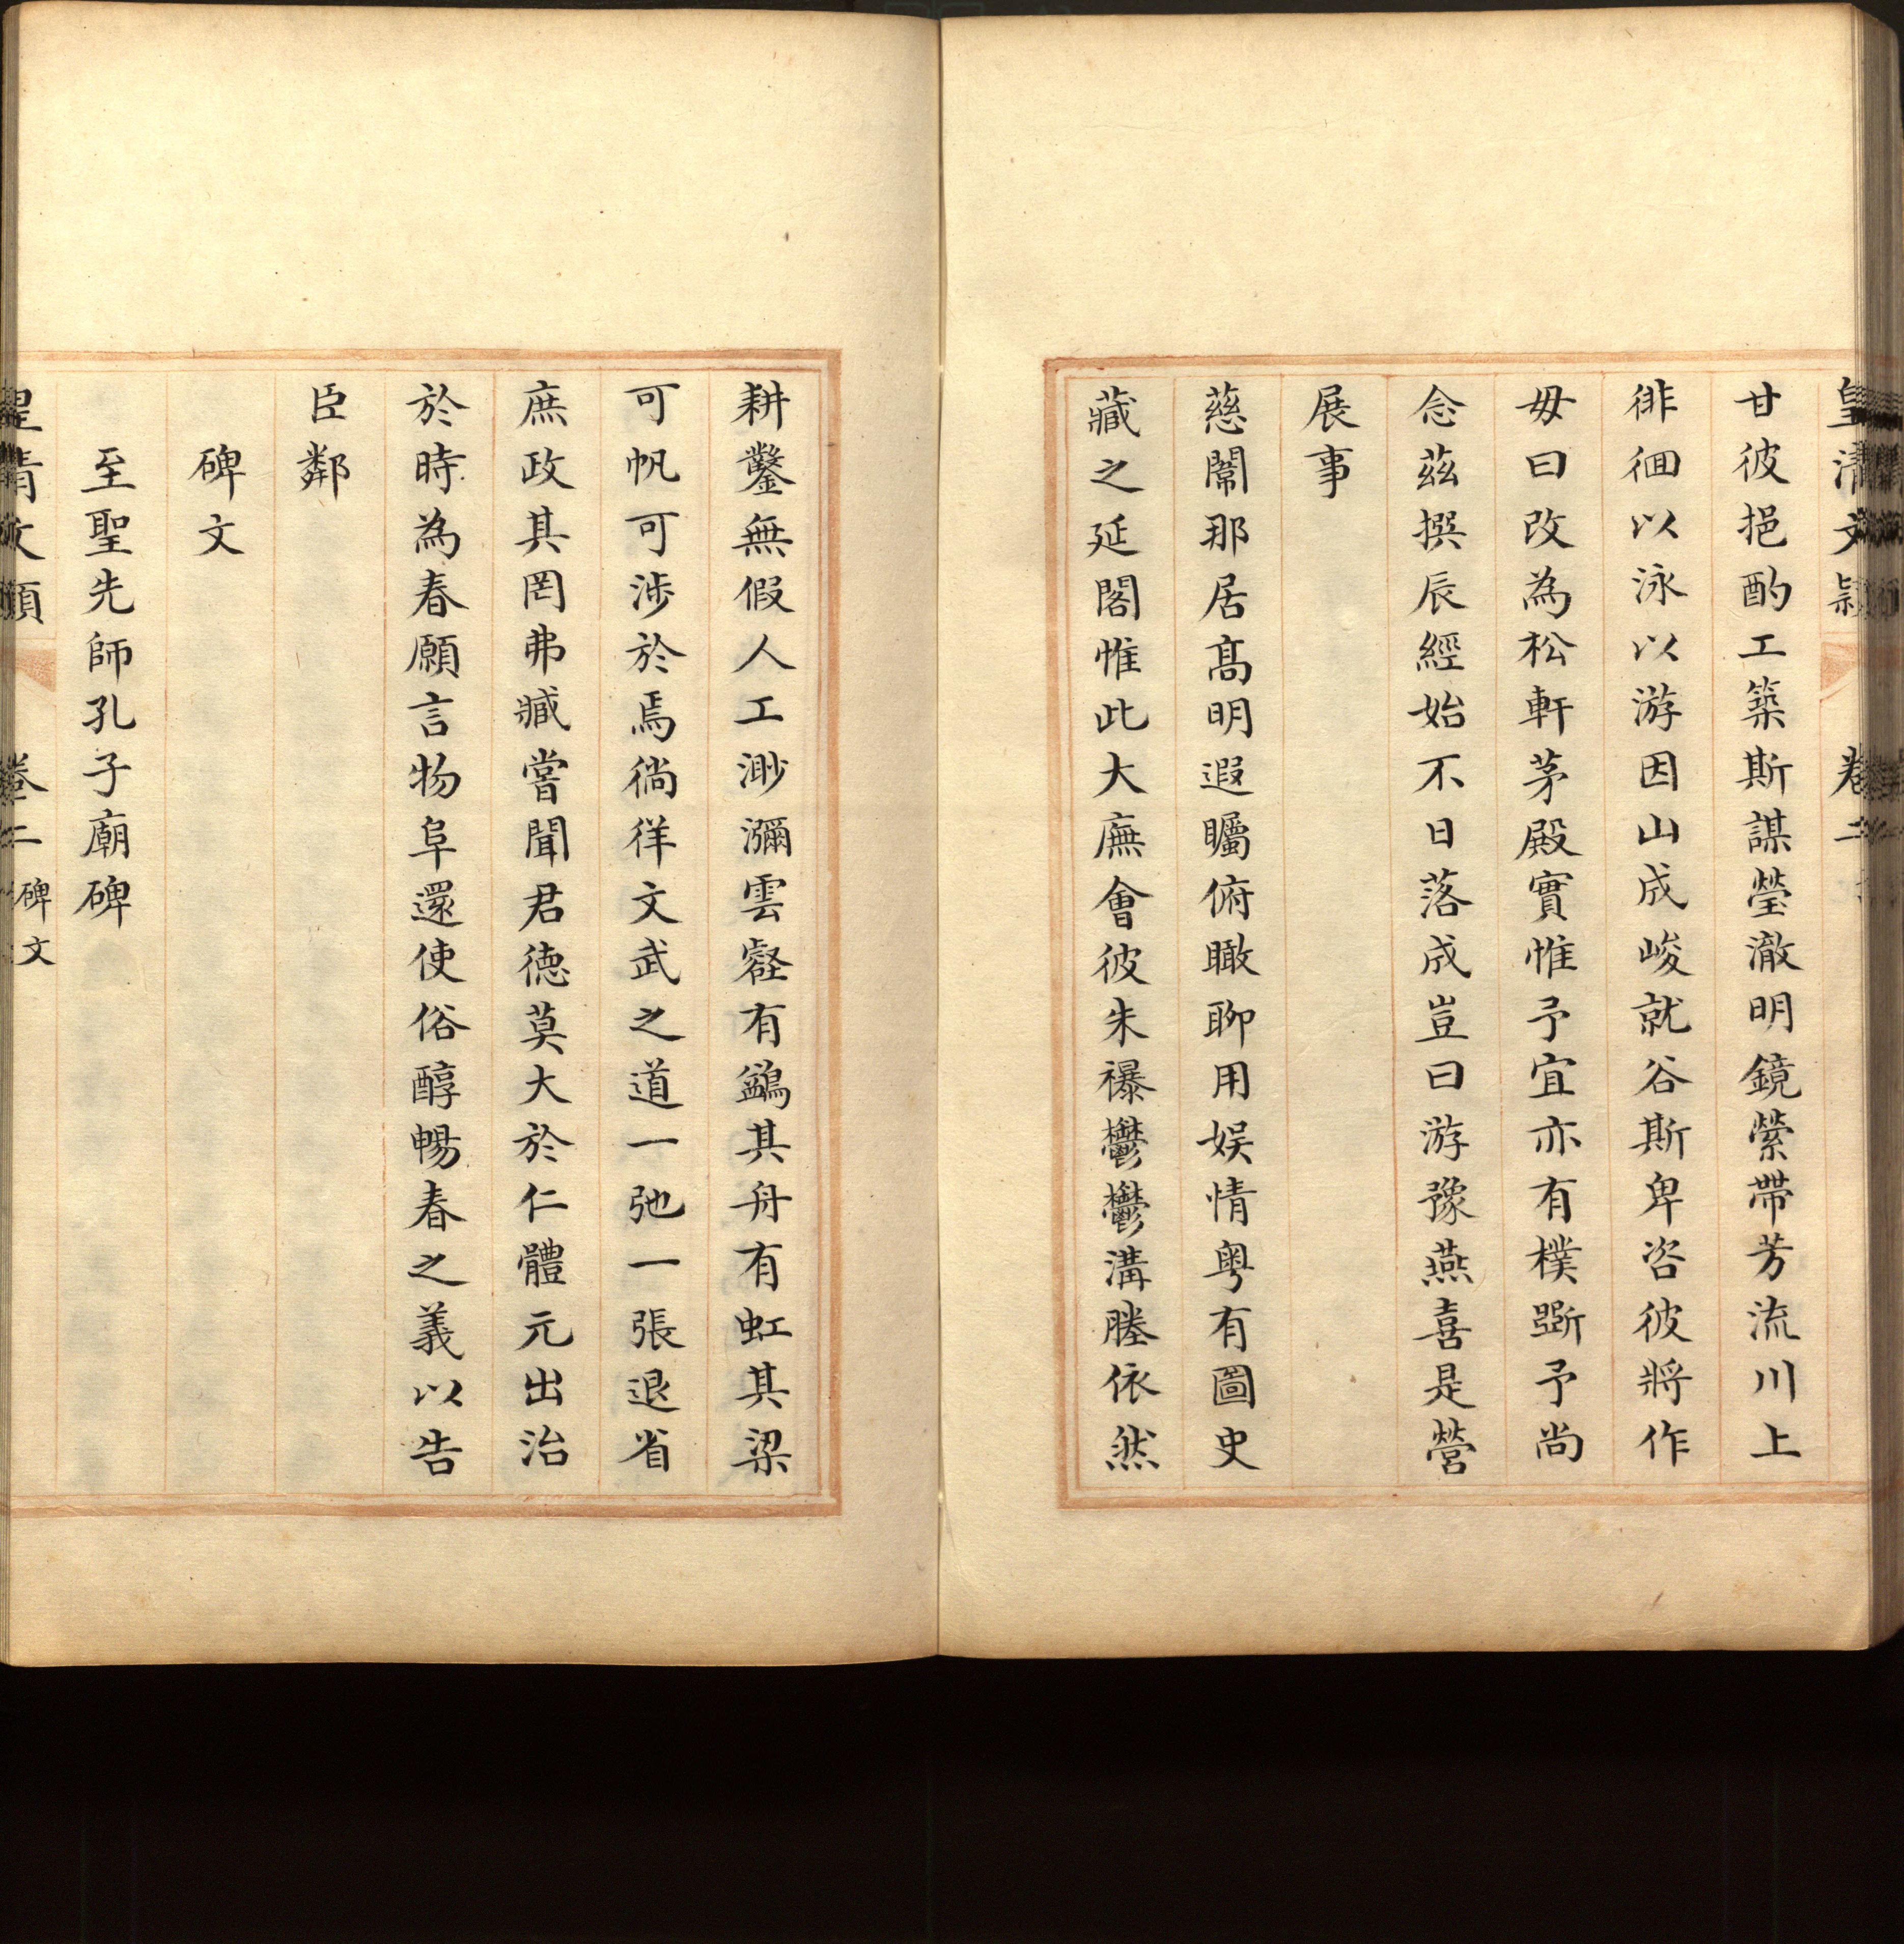 皇清文穎 卷二
甘彼挹酌工築斯謀瑩澈明鏡縈帶芳流川上
徘徊以泳以游因山成峻就谷斯卑咨彼將作
毋曰改為松軒茅殿實惟予宜亦有樸斲予尚
念茲撰辰經始不日落成豈曰游豫燕喜是營
展事
慈闈那居髙明遐矚俯瞰聊用娱情粤有圖史
藏之延閣惟此大廡會彼朱襮鬱鬱溝塍依然
耕鑿無假人工渺瀰雲壑有鷁其舟有虹其梁
可帆可涉於焉徜徉文武之道一弛一張退省
庶政其罔弗臧嘗聞君德莫大於仁體元出治
於時為春願言物阜還使俗醇暢春之義以告
臣鄰
碑文
至聖先師孔子廟碑
皇清文穎 卷二 碑文